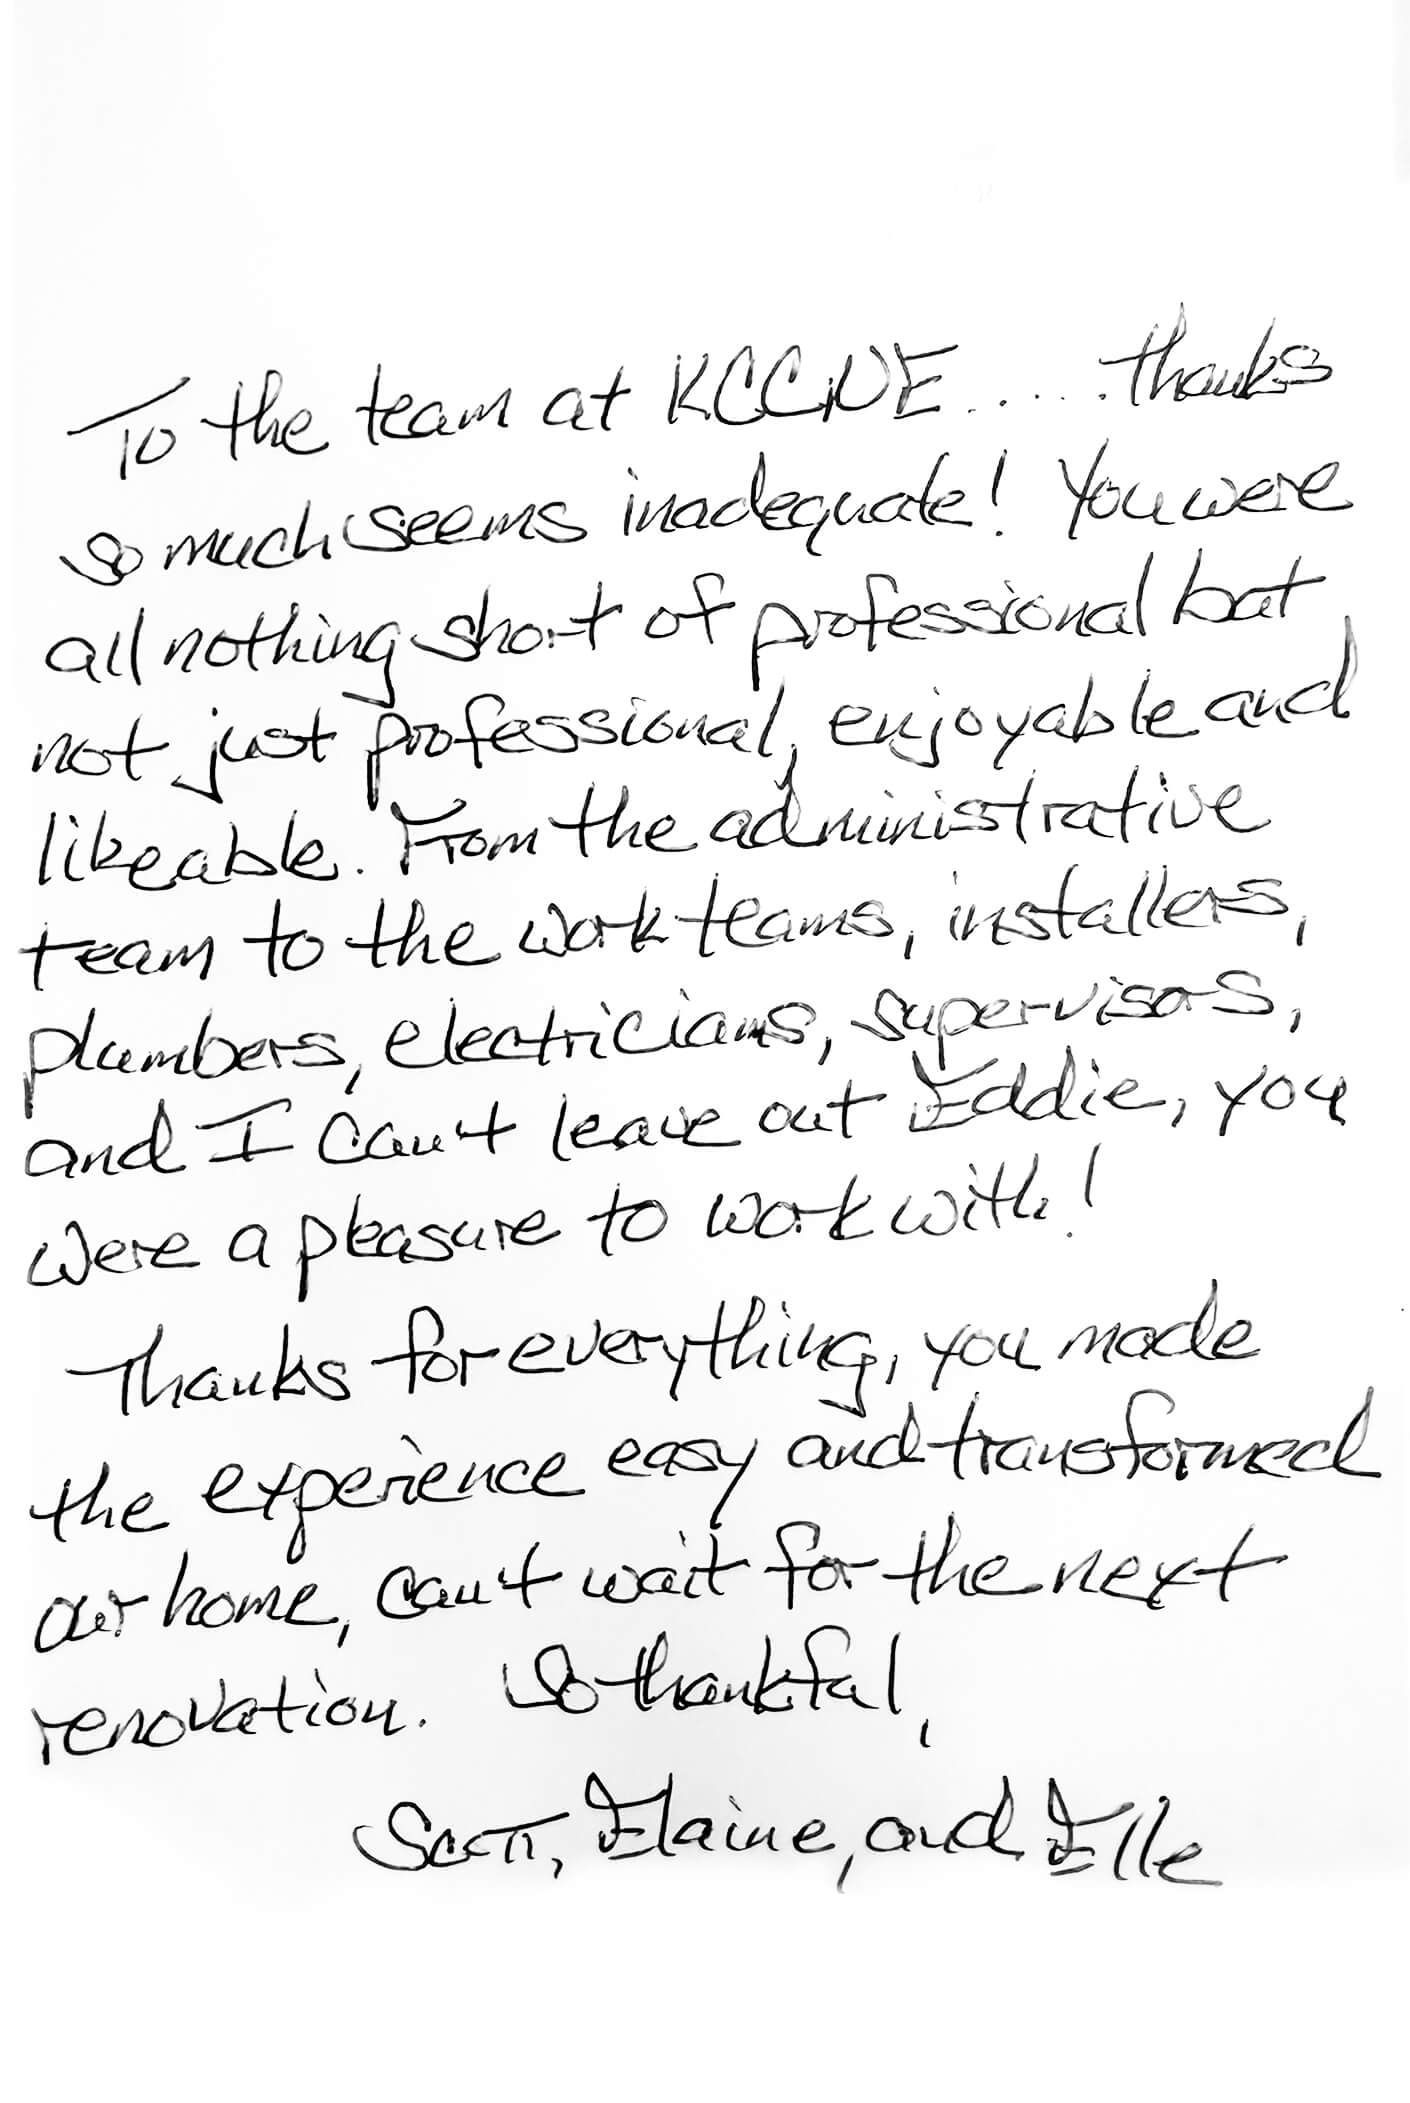 To the team at KCCNE..... thanks
so much seems inadequate! You were
all nothing short of professional but
not just professional, enjoyable and
likeable. From the administrative
team to the work teams, installers,
plumbers, electricians, supervisors,
and I can't leave out Eddie, you
were a pleasure to work with!
Thanks for everything, you made
the experience easy and transformed
our home, can't wait for the next
renovation. So thankful,
Scott, Elaine, and Elle